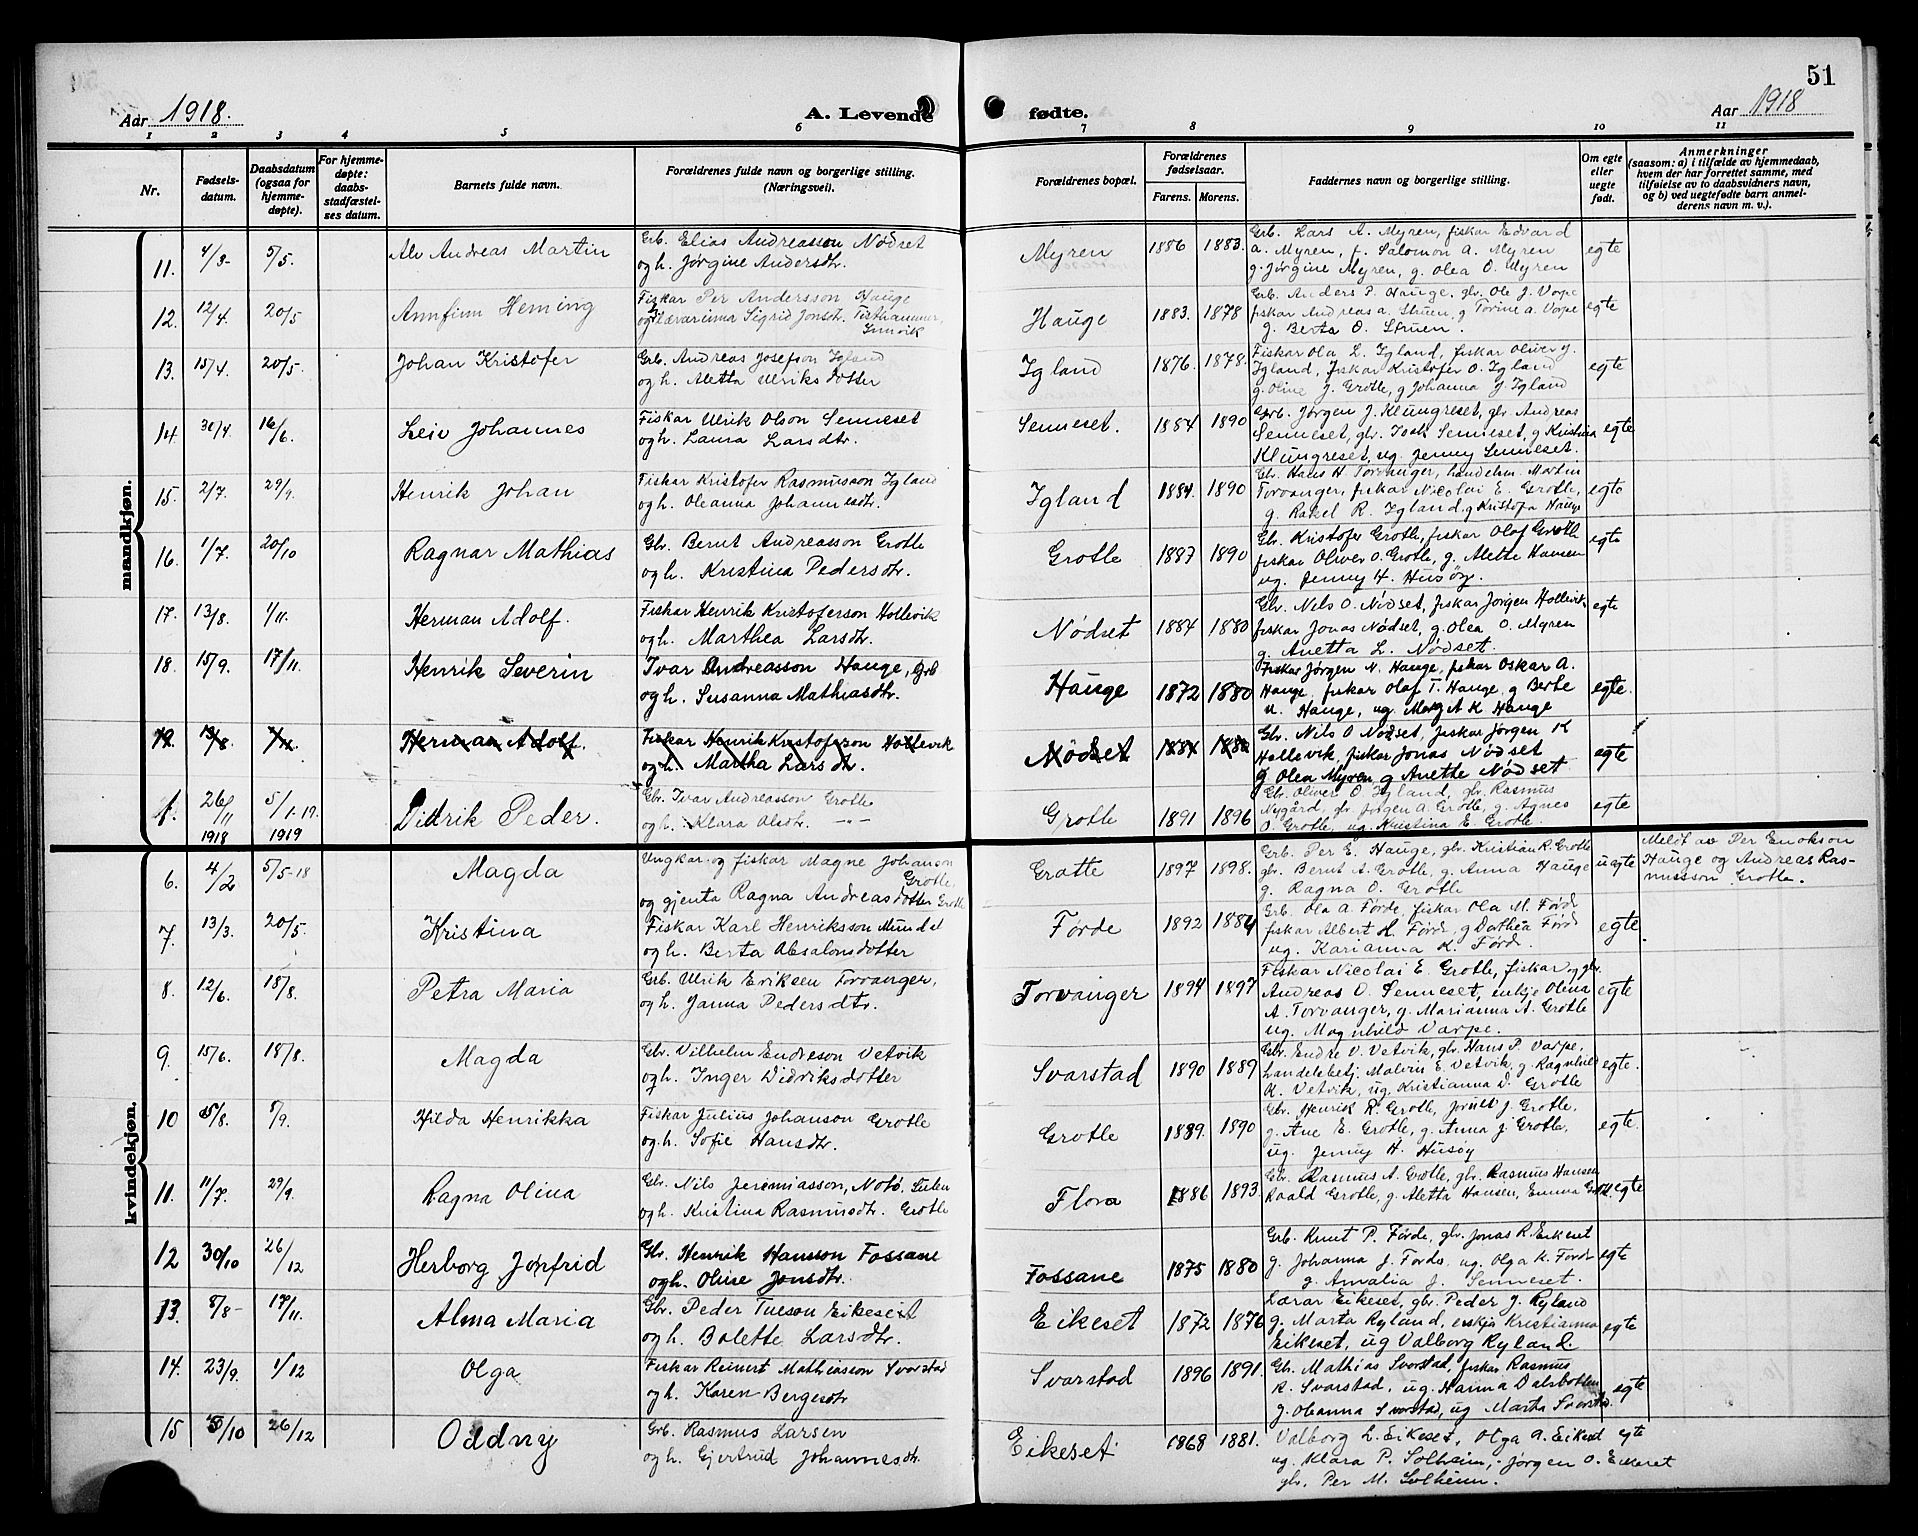 51
Aar 1918. A. Levende fødte. Aar 1918
1 2 3 4 5 6 7 8 9 10 11
Nr. Fødsels-datum. Daabsdatum (ogsaa for hjemme-døpte). For hjemme-døpte: daabs-stadfæstel-ses datum. Barnets fulde navn. Forældrenes fulde navn og borgerlige stilling. (Næringsvei). Forældrenes bopæl. Forældrenes fødselsaar. Farens. Morens. Faddernes navn og borgerlige stilling. Om egte eller uegte født. Anmerkninger (saasom: a) i tilfælde av hjemmedaab, hvem der har forrettet samme, med tilføielse av to daabsvidners navn, og b) ved uegtefødte barn anmel-derens navn m. v.).
mandkjøn.
11. 4/3- 5/5. Alv Andreas Martin Grb. Elias Andreasson Nødset Myren 1886 1883. Grb. Lars A. Myren, fiskar Edvard egte
og h. Jørgine Andersdtr. a. Myren, f. Salomon A. Myren
g. Jørgine Myren, g. Olea O. Myren
12. 12/4. 20/5 Annfinn Heming Fiskar Per Andersson Hauge Hauge 1883. 1878 Grb. Anders P. Hauge, gbr. Ole J. Varpe egte
Sigrid Jonsdtr. fiskar Andreas a. Struen, g Torine a. Varpe
g. Berta O. Struen.
13. 15/4. 20/5. Johan Kristofer Grb. Andreas Josefson Igland Igland 1876. 1878. Fiskar Ola L. Igland, fiskar Oliver J. egte
og h. Aletta Ulriks dotter Igland, fiskar Kristofer O. Igland
g. Oline J. Grotle, g Johanna J Igland
14 30/4. 16/6. Leiv Johannes Fiskar Ulrik Olson Senneset Senneset. 1884 1890 Grb. Jørgen J. Klungreset, gbr Andreas egte
og h. Laura Larsdtr. Senneset, gbr. Isak Senneset, g Kristina
Klungreset, ug. Jenny Senneset.
15. 2/7. 29/9. Henrik Johan Fiskar Kristofer Rasmusson Igland Igland 1884. 1890 Gbr. Hans H Torvanger, handelsm. Martin egte
og h. Oleanna Johannesdtr. Torvanger, fiskar Nicolai E. Grotle,
g. Rakel R. Igland, g Kristofa Hauge
16. 1/7. 20/10 Ragnar Mathias Gbr. Bernt Andreasson Grotle Grotle 1887 1890 Gbr. Kristofer Grotle, fiskar Olaf Grotle egte
og h. Kristina Pedersdtr. fiskar Oliver O. Grotle, g. Alette Hansen
ug. Jenny H. Husøy.
17. 13/8. 1/11. Herman Adolf. Fiskar Henrik Kristoferson Hollevik Nødset 1884 1880 Gbr. Nils O. Nødset, fiskar Jørgen Hollevik, egte
og h. Marthea Larsdtr. fiskar Jonas Nødset, g. Olea O. Myren
g. Anetta L. Nødset.
18. 15/9. 17/11. Henrik Severin Ivar Andreasson Hauge, Grb Hauge 1872 1880 Fiskar Jørgen N. Hauge, fiskar Oskar A. egte.
og h. Susanna Mathiasdtr. Hauge, fiskar Olaf T. Hauge, g Berte
Hauge, ug. Margit K Hauge
19. 13/8. 1/11. Herman Adolf. Fiskar Henrik Kristoferson Hollevik Nødset 1884 1880 Gbr. Nils O Nødset, fiskar Jørgen K egte
og h. Martha Larsdtr. Hollevik, fiskar Jonas Nødset
g Olea Myren, g Anette Nødset
1. 26/11 1918 5/1-19. 1919 Didrik Peder. Gbr. Ivar Andreasson Grotle Grotle 1891 1896 Gbr. Oliver O Igland, gbr. Rasmus egte
og h. Klara Olsdtr. -"- Nygård, gbr. Jørgen A. Grotle, g. Agnes
O. Grotle, ug. Kristina E. Grotle.
kvindekjøn.
6. 4/2 5/5-18 Magda Ungkar og fiskar Magne Johanson Grotle, Grotle 1897 1898. Grb. Per E. Hauge, gbr. Kristian R. Grotle uegte Meldt av Per Enokson
og gjenta Ragna Andreasdotter Grotle gbr. Bernt A. Grotle, g. Anna Hauge Hauge og Andreas Ras-
g. Ragna O. Grotle musson Grotle.
7. 13/3. 20/5. Kristina Fiskar Karl Henriksson Mundal Førde 1892 1884 Grb. Ola A. Førde, fiskar Ola M. Førde egte
og h. Berta Absalonsdotter fiskar Albert H. Førde, g Dorthea Førde
ug. Karianna K. Førde.
8. 12/6. 18/8. Petra Maria Grb. Ulrik Eriksen Torvanger, Torvanger 1894 1897 Fiskar Nicolai E. Grotle, fiskar og gbr. egte
og h. Janna Pedersdtr. Andreas O. Senneset, enkje Olina
A. Torvanger, g. Marianna A. Grotle
ug. Magnhild Varpe.
9 15/6. 18/8. Magda Gbr. Vilhelm Endreson Vetvik Svarstad 1890 1889 Gbr. Endre V. Vetvik, gbr. Hans P. Varpe, egte.
og h. Inger Didriksdotter handelsbetj. Malvin E. Vetvik, g Ragnhild
K. Vetvik, ug. Kristianna D. Grotle
10 5/8. 1/9. Hilda Henrikka Fiskar Julius Johanson Grotle Grotle 1889. 1890 Gbr. Henrik R. Grotle, J. Grotle, egte.
og h. Sofie Hansdtr. g. Ane E. Grotle, g. Anna J. Grotle,
ug. Jenny H. Husøy
11. 11/7. 29/9. Ragna Olina Gbr. Nils Jeremiasson, Notø. Sulen Florø 1886 1893. Gbr. Rasmus A. Grotle, gbr. Rasmus Hansen egte
og h. Kristina Rasmusdtr. Grotle Raald Grotle, g. Aletta Hansen, Emma Grotle.
12 30/10 26/12 Herborg Jonfrid Gbr. Henrik Hansson Fossane Fossane 1875 1880 Grb. Knut P. Førde, gbr. Jonas R. Eikeset egte
og h. Oline Jonsdtr. g. Johanna J. Førde, ug. Olga K. Førde
g. Amalia J. Senneset.
13. 8/8- 17/11. Alma Maria Gbr. Peder Tueson Eikeset Eikeset 1872 1876 Lærar Eikeset, gbr. Peder J. Ryland egte
og h. Bolette Larsdtr. g. Marta Ryland, enkje Kristianna
Eikeset, ug Valborg Ryland.
14. 23/9. 1/12 Olga Fiskar Reinert Mathiasson Svarstad Svarstad 1896 1891. Gbr. Mathias Svarstad, fiskar Rasmus egte
og h. Karen Bergesdtr R. Svarstad, ug. Hanna Dalsbotten
g. Oleanna Svarstad, ug Marta Svarstad.
15 /10 26/12 Oddny Grb. Rasmus Larsen Eikeset 1868 1881. Valborg L. Eikeset, Olga A. Eikeset egte
og h. Gjertrud Johannesdtr. ug. Klara P. Solheim, Jørgen O. Eikeset
gbr. Per M. Solheim.